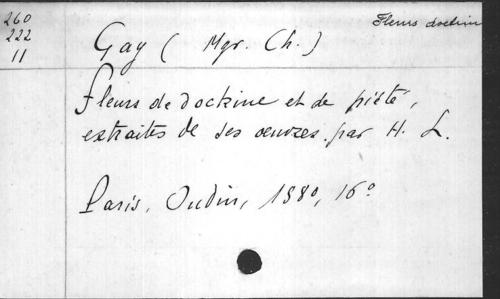 260
222
11
Fleurs doctrine
Gay ( Mgr. Ch. )
fleurs de doctrine et de piété,
extraites de ses œuvres. par H. L.
Paris, Oudin, 1880, 16°